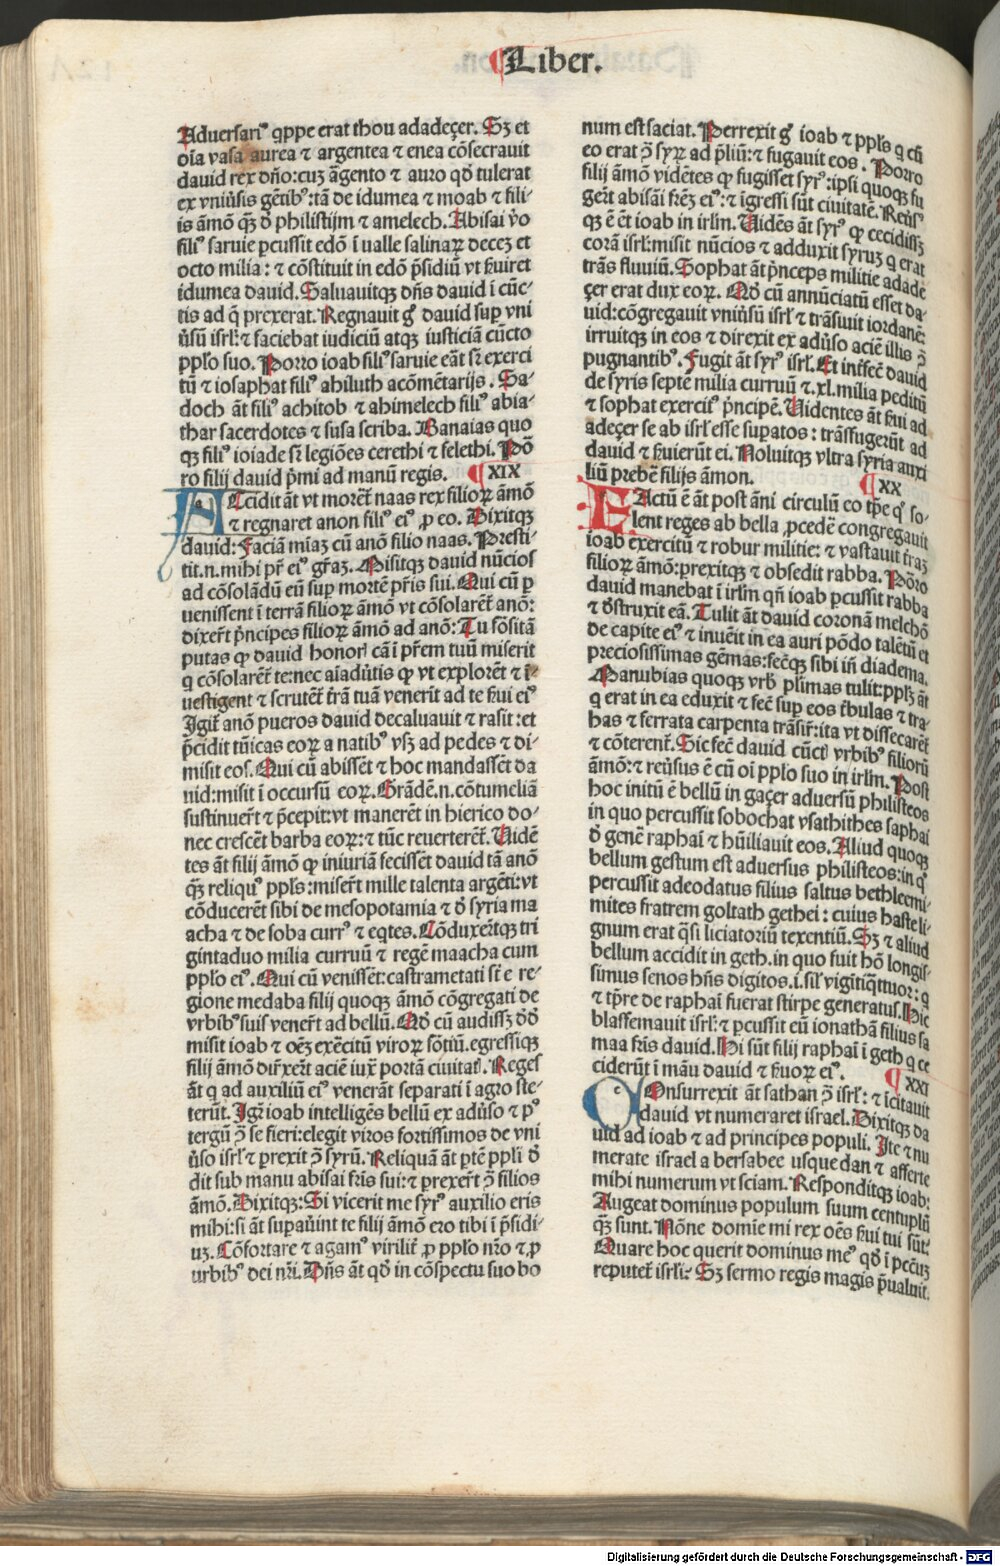 Liber.
Aduersari⁹ q̇ppe erat thou adadeçer. Sꝫ et
oi̅a vasa aurea ⁊ argentea ⁊ enea co̅secrauit
dauid rex dn̅o: cuꝫ a̅gento ⁊ auro qd̛ tulerat
ex vniưsis ge̅tib⁹: ta̅ de idumea ⁊ moab ⁊ fili-
is a̅mo̅ qꝫ̅ d̛ philistijm ⁊ amelech. Abisai v̛o
fili⁹ saruie ꝑcussit edo̅ i̅ ualle salinaꝝ deceꝫ et
octo milia: ⁊ co̅stituit in edo̅ p̅sidiu̅ vt s̛uiret
idumea dauid. Saluauitqꝫ dn̅s dauid i̅ cu̅c-
tis ad q̅ prexerat. Regnauit g̊ dauid suꝑ vni
ưsu̅ isrl̛: ⁊ faciebat iudiciu̅ atqꝫ iusticia̅ cu̅cto
ppl̛o suo. Porro ioab fili⁹ saruie ea̅t sr̅ exerci
tu̅ ⁊ iosaphat fili⁹ ahiluth aco̅me̅tarijs. Sa-
doch a̅t fili⁹ achitob ⁊ ahimelech fili⁹ abia-
thar sacerdotes ⁊ susa scriba. Banaias quo
qꝫ fili⁹ ioiade sr̅ legio̅es cerethi ⁊ felethi. Po̅
ro filij dauid p̅mi ad manu̅ regis. XIX
ACcidit a̅t vt morer̅t naas rex filioꝝ a̅mo̅
⁊ regnaret anon fili⁹ ei⁹ ꝓ eo. Dixitqꝫ
dauid: Facia̅ mi̅aꝫ cu̅ ano̅ filio naas. Presti-
tit.n.mihi pr̅ ei⁹ gr̅aꝫ. Misitqꝫ dauid nu̅cios
ad co̅sola̅du̅ eu̅ suꝑ morte̅ pr̅is sui. Qui cu̅ ꝑ
venissent i̅ terra̅ filioꝝ a̅mo̅ vt co̅solare̅t ano̅:
dixer̅t p̅ncipes filioꝝ a̅mo̅ ad ano̅: Tu fo̅sita̅
putas ꝙ dauid honor̛ ca̅ i̅ pr̅em tuu̅ miserit
q̇ co̅solare̅t te: nec ai̅adưtis ꝙ vt explore̅t ⁊ i̅-
uestigent ⁊ scrute̅t tr̅a̅ tua̅ venerit ad te s̛ui ei⁹
Jgit̅ ano̅ pueros dauid decaluauit ⁊ rasit: et
p̅cidit tu̅icas eoꝝ a natib⁹ vsꝫ ad pedes ⁊ di-
misit eos. Qui cu̅ abisse̅t ⁊ hoc mandasse̅t da
uid: misit i̅ occursu̅ eoꝝ. Gra̅de̅.n. co̅tumelia̅
sustinuer̅t ⁊ p̅cepit: vt manere̅t in hierico do-
nec cresce̅t barba eoꝝ: ⁊ tu̅c reuertere̅t. Uide̅
tes a̅t filij a̅mo̅ ꝙ iniuria̅ fecisse̅t dauid ta̅ ano̅
qꝫ̅ reliqu⁹ ppl̛s: miser̅t mille talenta arge̅ti: vt
co̅ducere̅t sibi de mesopotamia ⁊ d̛ syria ma
acha ⁊ de soba curr⁹ ⁊ eq̇tes. Co̅duxer̅tqꝫ tri
gintaduo milia curruu̅ ⁊ rege̅ maacha cum
ppl̛o ei⁹. Qui cu̅ venisse̅t: castrametati st̅ e re-
gione medaba filij quoqꝫ a̅mo̅ co̅gregati de
vrbib⁹ suis vener̅t ad bellu̅. Qd̛ cu̅ audissꝫ dd̛
misit ioab ⁊ oe̅ꝫ exe̅citu̅ viroꝝ fo̅tiu̅. egressiqꝫ
filij a̅mo̅ dir̅xer̅t acie̅ iux̅ porta̅ ciuitat̛. Reges
a̅t q̇ ad auxiliu̅ ei⁹ venera̅t separati i̅ agro ste-
teru̅t. Jgr̅ ioab intellige̅s bellu̅ ex adưso ⁊ p⁹
tergu̅ ꝯ̅ se fieri: elegit viros fortissimos de vni
ưso isrl̛ ⁊ ꝑrexit ꝯ̅ syru̅. Reliqua̅ a̅t ꝑte̅ ppl̛i d̛
dit sub manu abisai fr̅is sui: ⁊ ꝑrexer̅t ꝯ̅ filios
a̅mo̅. Dixitqꝫ: Si vicerit me syr⁹ auxilio eris
mihi: si a̅t supaưint te filij a̅mo̅ ero tibi i̅ p̅sidi-
uꝫ. Co̅fortare ⁊ agam⁹ virilit̅ ꝓ ppl̛o nr̅o ⁊ ꝓ
urbib⁹ dei nr̅i. Dn̅s a̅t qd̛ in co̅spectu suo bo
num est faciat. Perrexit g̊ ioab ⁊ ppl̛s q̇ cu̅
eo erat ꝯ̅ syꝝ ad p̅liu̅: ⁊ fugauit eos. Porro
filij a̅mo̅ vide̅tes ꝙ fugisset syr⁹: ipsi quoqꝫ fu
ger̅t abisai̅ fre̅ꝫ ei⁹: ⁊ i̅gressi su̅t ciuitate̅. Reưs⁹
qꝫ e̅ e̅t ioab in irl̛m. Uide̅s a̅t syr⁹ ꝙ cecidissꝫ
cora̅ isrl̛: misit nu̅cios ⁊ adduxit syruꝫ q̇ erat
tra̅s fluuiu̅. Sophat a̅t p̅nceps militie adade
çer erat dux eoꝝ. Qd̛ cu̅ annu̅ciatu̅ esset da-
uid: co̅gregauit vniưsu̅ isrl̛ ⁊ tra̅siuit iordane̅:
irruitqꝫ in eos ⁊ direxit ex adưso acie̅ illis ꝯ̅
pugnantib⁹. Fugit a̅t syr⁹ isrl̛. Et inter̛fec̅ dauid
de syris septe̅ milia curruu̅ ⁊ .xl. milia peditu̅
⁊ sophat exercit⁹ p̅ncipe̅. Uidentes a̅t s̛ui ad
adeçer se ab isrl̛ esse suꝑatos: tra̅sfugeru̅t ad
dauid ⁊ s̛uieru̅t ei. Noluitqꝫ vltra syria auxi
liu̅ prebe̅ filijs a̅mon. XX
FActu̅ e̅ a̅t post a̅ni circulu̅ eo tp̅e q̊ so-
lent reges ab bella ꝓcede̅ congregauit
ioab exercitu̅ ⁊ robur militie: ⁊ vastauit tr̅aꝫ
filioꝝ a̅mo̅: ꝑrexitqꝫ ⁊ obsedit rabba. Po̅ro
dauid manebat i̅ irl̛m qn̅ ioab ꝑcussit rabba
⁊ d̛struxit ea̅. Tulit a̅t dauid corona̅ melcho̅
de capite ei⁹ ⁊ inue̅it in ea auri po̅do tale̅tu̅ et
preciosissimas ge̅mas: fec̅qꝫ sibi in̅ diadema.
Manubias quoqꝫ vrb̛ pl̛imas tulit: ppl̛ꝫ a̅t
q̇ erat in ea eduxit ⁊ fec̅ suꝑ eos t̛bulas ⁊ tra-
has ⁊ ferrata carpenta tra̅sir̅: ita vt dissecare̅t
⁊ co̅terent̅. Sic fec̅ dauid cu̅ct̛ vrbib⁹ filioru̅
a̅mo̅: ⁊ reưsus e̅ cu̅ oi̅ ppl̛o suo in irl̛m. Post
hoc initu̅ e̅ bellu̅ in gaçer aduersu̅ philisteos
in quo percussit sobochat vsathithes saphai
d̛ gene̅ raphai̅ ⁊ hu̅iliauit eos. Aliud quoqꝫ
bellum gestum est aduersus philisteos: in q̊
percussit adeodatus filius saltus bethleemi-
mites fratrem goltath gethei: cuius haste li-
gnum erat q̅si liciatoriu̅ texentiu̅. Sꝫ ⁊ aliud
bellum accidit in geth. in quo fuit ho̅ longis-
simus senos hn̅s digitos. i. sil̛ vigi̅tiq̅tuoꝝ: q̇
⁊ ip̅e de raphai̅ fuerat stirpe generatus. Hic
blasfemauit isrl̛: ⁊ ꝑcussit eu̅ ionatha̅ filius sa
maa fr̅is dauid. Hi su̅t filij raphai̅ i̅ geth q̇ ce
cideru̅t i̅ ma̅u dauid ⁊ s̛uoꝝ ei⁹. XXI
COnsurrexit a̅t sathan ꝯ̅ isrl̛: ⁊ i̅citauit
dauid vt numeraret israel. Dixitqꝫ da
uid ad ioab ⁊ ad principes populi. Ite ⁊ nu
merate israel a bersabee usque dan ⁊ afferte
mihi numerum vt sciam. Responditqꝫ ioab:
Augeat dominus populum suum centuplu̅
qꝫ̅ sunt. No̅ne domi̅e mi rex oe̅s s̛ui tui su̅t:
Quare hoc querit dominus me⁹ qd̛ i̅ pec̅uꝫ
reputet̅ isrl̛i? Sꝫ sermo regis magis p̅ualuit.
Digitalisierung gefördert durch die Deutsche Forschungsgemeinschaft - DFG